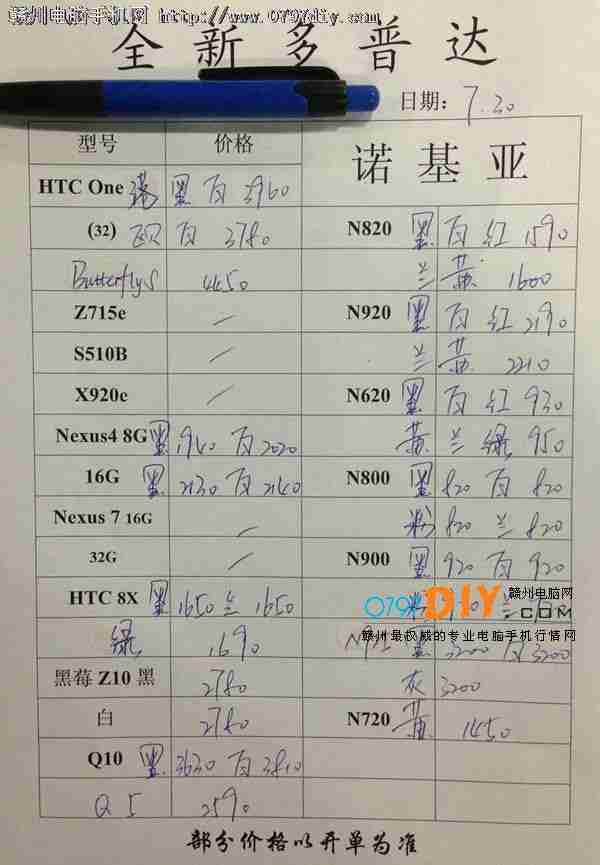 赣州电脑手机网 http://www.0797diy.com
全新多普达
日期: 7.30
型号 价格 诺基亚
HTC One 港 黑 白 3960
(32) 欧 白 3780 N820 黑 白 红 1590
Butterfly S 4450 兰 黄 1600
Z715e / N920 黑 白 红 2190
S510B / 兰 黄 2210
X920c / N620 黑 白 红 930
Nexus4 8G 黑 1940 白 2020 黄 兰 绿 950
16G 黑 2130 白 2140 N800 黑 820 白 820
Nexus 7 16G / 粉 820 兰 820
32G / N900 黑 920 白 920
HTC 8X 黑 1650 兰 1650 粉 兰
0797DIY.COM 赣州电脑网
赣州最权威的专业电脑手机行情网
绿 1690 N925 黑 3200 白 3200
黑莓 Z10 黑 2780 灰 3200
白 2780 N720 黄 1450
Q10 黑 3630 白 3810
Q5 2590
部分价格以开单为准